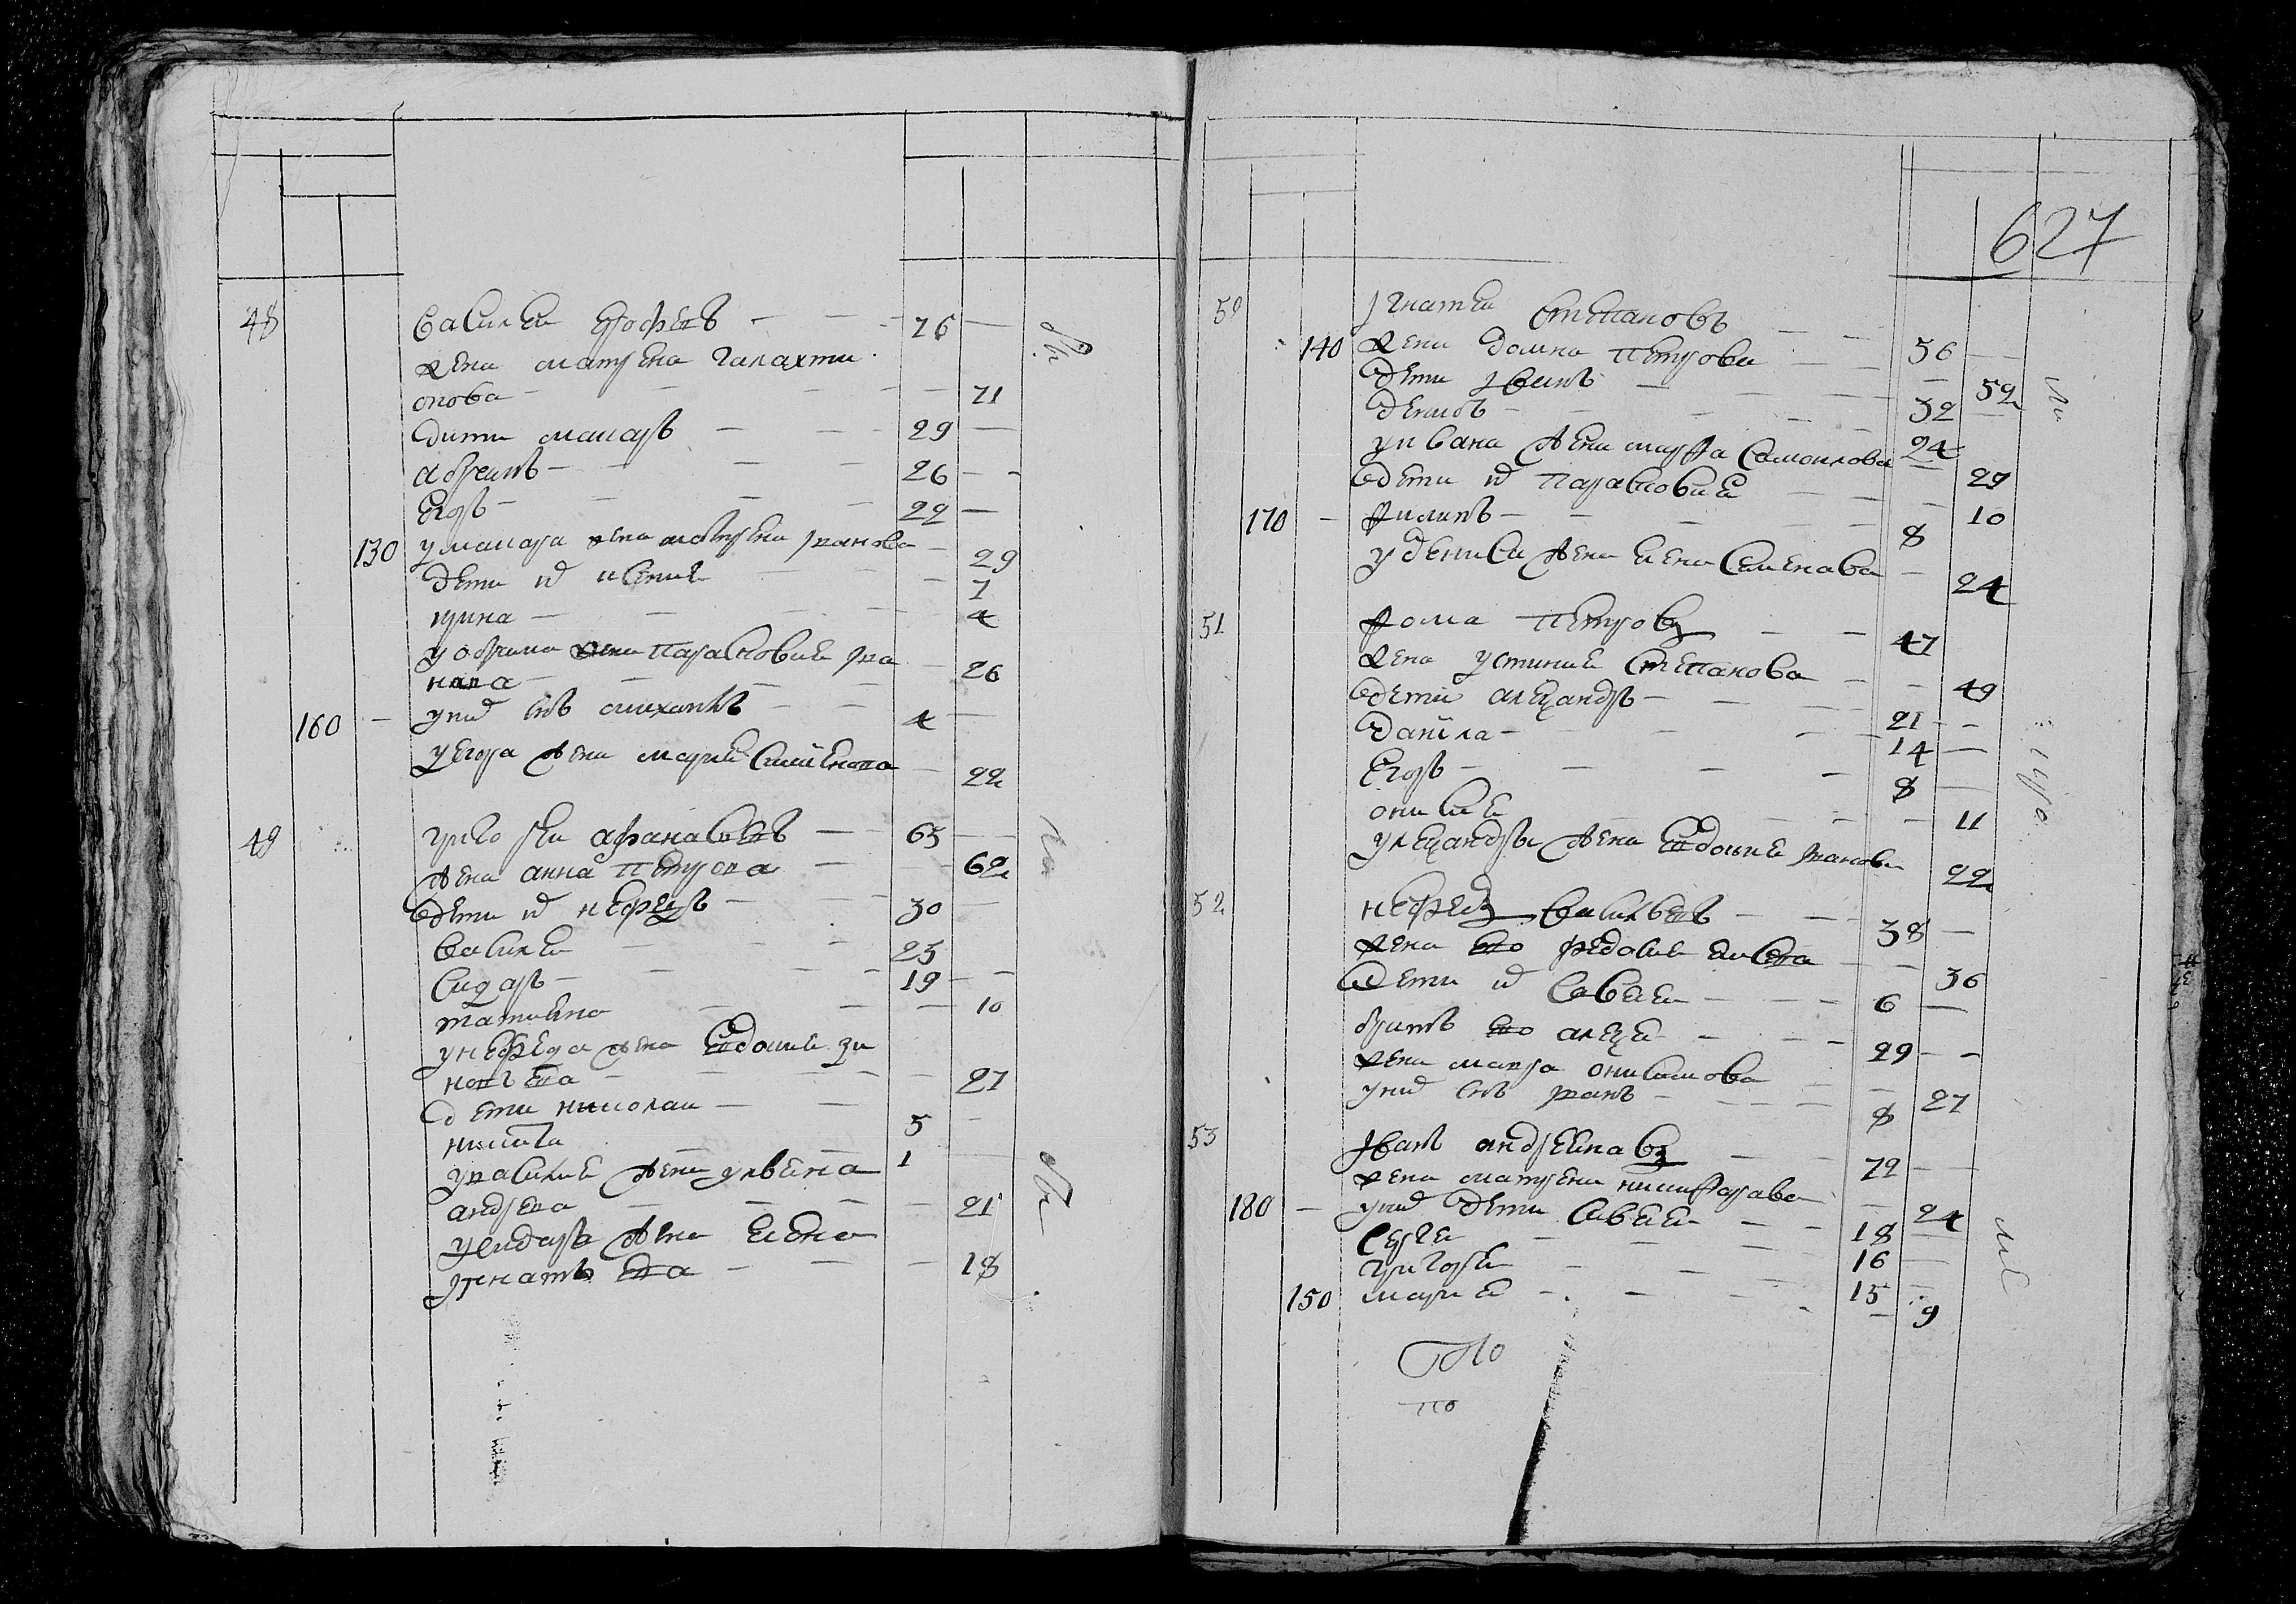 48 василеи ерофеевъ — 76 —
жена матрена галахти
онова — 71
дети макаръ — 29 —
абрамъ — 26 —
егоръ — 22 —
130 у макара жена матрена иванова — 29
дети их — 7
ирина — 4
у абрама жена парасковия ива
нова — 26
160 — у них снъ — 4 —
у егора жена мария семенова — 22
49 григореи афанасевъ — 65 —
жена анна петрова — 62
дети их нефедъ — 30 —
василеи — 23
сидаръ — 19 —
татияна — 10
у нефеда жена евдокия зи
новева — 27
дети николаи — 5 —
никита — 1
у василия жена улвяна
андрева — 21
у сидара жена елена
игнатева — 18
627
50 игнатеи степановъ — 56 —
140 жена домна петрова — 52
дети иванъ — 32 —
денисъ — 24
у ивана жена марфа самоилова — 29
дети их парасковия — 10
170 — филипъ — 8
у дениса жена елена семенава — 24
51 фома петровъ — 47
жена устиния степанова — 49
дети александръ — 21 —
данила — 14 —
егоръ — 8 —
онисия — 11
у лександры жена евдокия иванова 22
52 нефедъ василевъ — 38 —
жена ево федосия — 36
дети их савелеи — 6 —
братъ ево алексеи — 29 —
жена марфа онисимова — 27
у них снъ иванъ — 8
53 иванъ андреянавъ — 72 —
жена матрена никифарава — 24
180 — у них дети савелеи — 18 —
сергеи — 16 —
григореи — 15 —
150 мария — 9
По
по